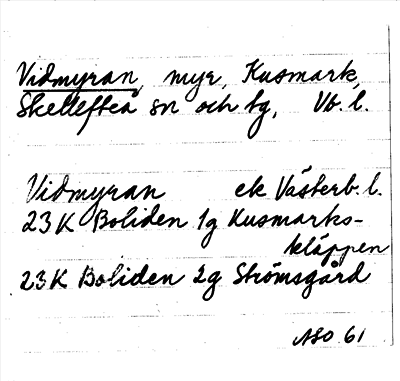 Vidmyran, myr, Kusmark,
Skellefteå sn och tg, Vb. l.
Vidmyran ek Västerb. l.
23 K Boliden 1g Kusmarks-
kläppen
23 K Boliden 2g Strömsgård
ASO 61